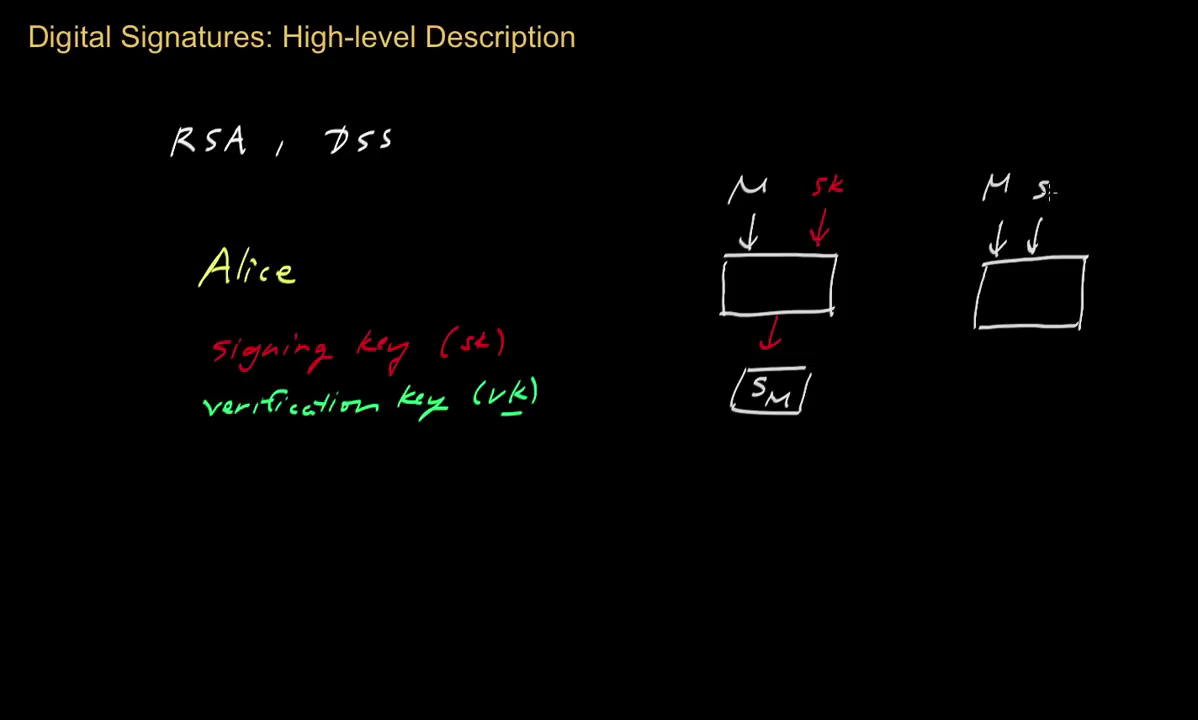 Digital Signatures: High-level Description
RSA, DSS
M sk
M s
Alice
signing key (sk)
verification key (vk)
SM